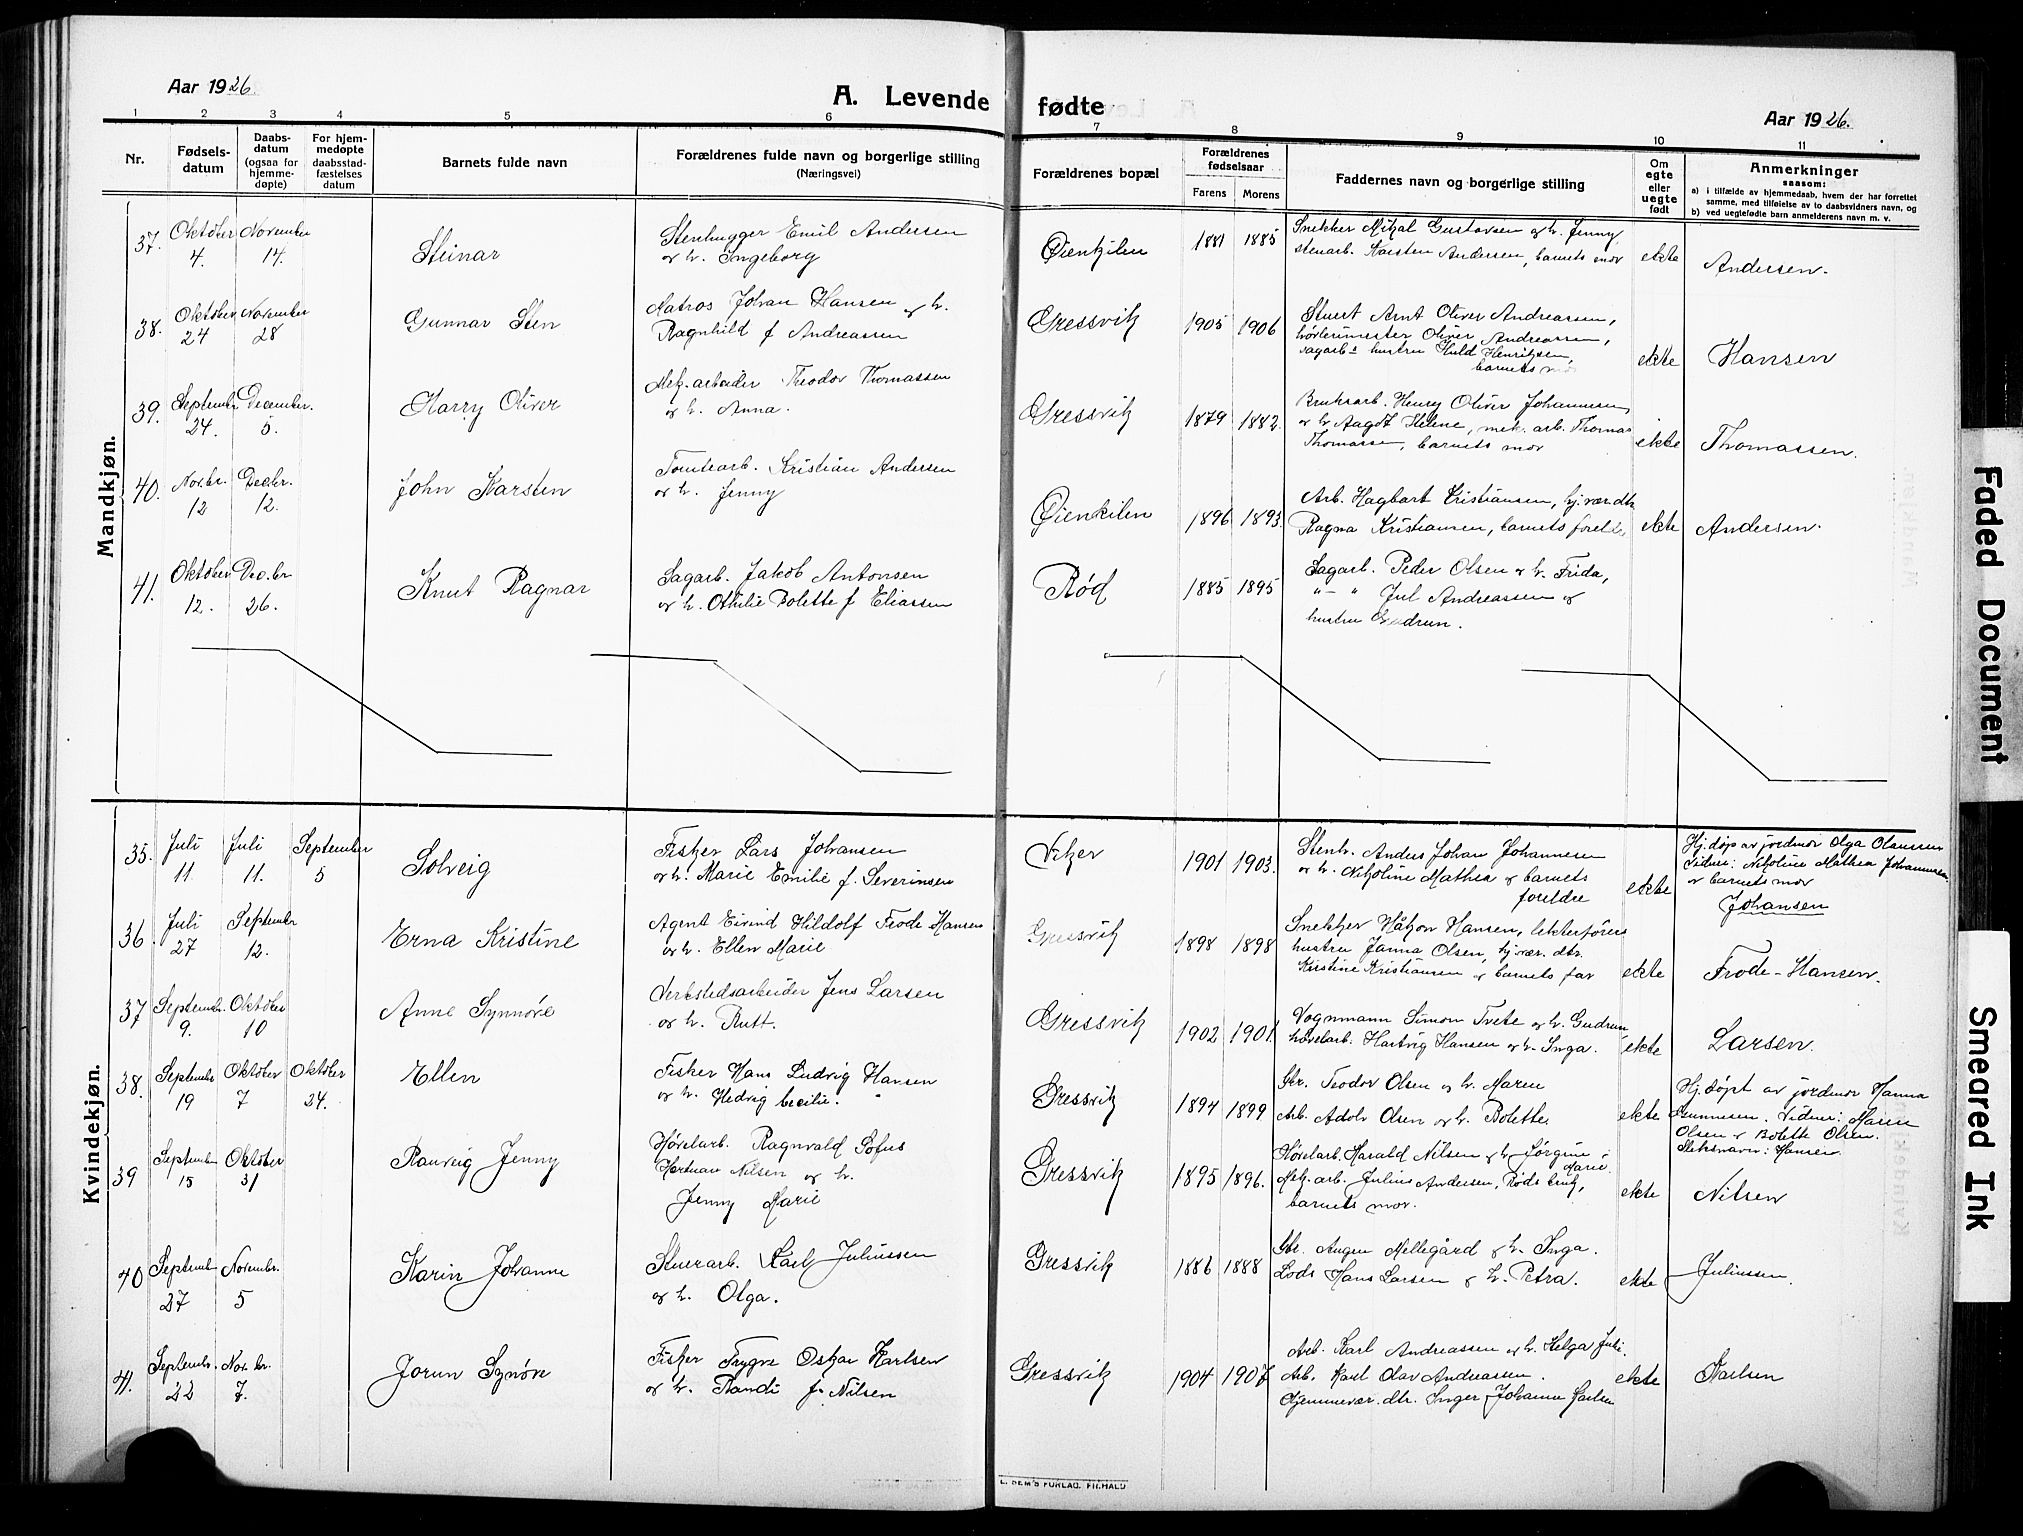 Aar 1926.
A. Levende fødte
Aar 1926.
1 2 3 4 5 6 7 8 9 10 11
Nr.
Fødsels-
datum
Daabs-
datum
(ogsaa for
hjemme-
døpte)
For hjem-
medøpte
daabsstad-
fæstelses
datum
Barnets fulde navn
Forældrenes fulde navn og borgerlige stilling
(Næringsvei)
Forældrenes bopæl
Forældrenes
fødselsaar
Farens Morens
Faddernes navn og borgerlige stilling
Om
egte
eller
uegte
født
Anmerkninger
saasom:
a) i tilfælde av hjemmedaab, hvem der har forrettet
samme, med tilføielse av to daabsvidners navn, og
b) ved uegtefødte barn anmelderens navn m. v.
Mandkjøn.
37. Oktober 4. November 14. Steinar
Stenhugger Emil Andersen
og h. Ingeborg
Øienkilen 1881 1885
Snekker Mikal Gustavsen og h. Jenny,
stenarb. Karsten Andersen, barnets mor
ekte Andersen.
38. Oktober 24 November 28 Gunnar Sten
Matros Johan Hansen og h.
Ragnhild f Andreassen
Gressvik 1905 1906
Stuert Arnt Oliver Andreassen,
høvlerimester Oliver Andreassen,
sagarb.s hustru Huld Henriksen,
barnets mor
ekte Hansen
39. September 24. December. 5. Harry Oliver
Mek. arbeider Theodor Thomassen
og h. Anna.
Gressvik 1879 1882.
Bruksarb. Henry Oliver Johannesen
og h Aagot Helene, mek. arb. Thomas
Thomassen, barnets mor
ekte Thomassen.
40. Novbr. 12 Decbr. 12. John Karsten
Tomtearb. Kristian Andersen
og h. Jenny
Øienkilen 1896 1893.
Arb. Hagbart Kristiansen, hj. vær. dtr.
Ragna Kristiansen, barnets foreldre
ekte Andersen.
41. Oktober 12. Dec.br 26. Knut Ragnar
Sagarb. Jakob Antonsen
og h. Othilie Bolette f Eliassen
Rød 1885 1895
Sagarb. Peder Olsen og h. Frida,
"-" Jul Andreassen og
hustru Gudrun.
Kvindekjøn.
35. Juli 11. Juli 11. September 5 Solveig
Fisker Lars Johansen
og h. Marie Emilie f. Severinsen
Viker 1901 1903.
Stenh. Anders Johan Johannesen
og h. Nikoline Mathea og barnets
foreldre
ekte
Hj. døp av jordmor Olga Olaussen
Vidner: Nikoline Mathea Johannesen
og barnets mor
Johansen
36. Juli 27 September 12. Erna Kristine
Agent Eivind Hildolf Frode Hansen
og h. Ellen Marie
Gressvik 1898 1898
Snekker Håkon Hansen, lekterførers
hustru Janna Olsen, hj. vær. dtr.
Kristine Kristiansen og barnets far
ekte Frode-Hansen.
37 September 9. Oktober 10 Anne Synnøve
Verkstedsarbeider Jens Larsen
og h. Rutt.
Gressvik 1902 1901.
Vognmann Simon Tvete og h. Gudrun,
høvelarb. Hartvig Hansen og h. Inga.
ekte Larsen.
38. September 19 Oktober 7 Oktober 24. Ellen
Fisker Hans Ludvig Hansen
og h. Hedvig Cecilie.
Gressvik 1894 1899
Gbr. Teodor Olsen og h. Maren
Arb. Adolv Olsen og h. Bolette.
ekte
Hj. døpt av jordmor Hanna
Gunnesen. Vidner: Maren
Olsen og Bolette Olsen.
Slektsnavn: Hansen
39 September 15 Oktober 31 Ranveig Jenny
Høvelarb. Ragnvald Sofus
Herman Nilsen og h.
Jenny Marie
Gressvik 1895 1896.
Høvelarb. Harald Nilsen og h Jørgine
Marie.
Mek. arb. Julius Andersen, Røds bruk,
barnets mor.
ekte Nilsen
40 September 27 Novembr. 5 Karin Johanne
Stuerarb. Karl Juliussen
og h. Olga.
Gressvik 1886 1888
Gbr. Augen Mellegård og h. Inga.
Lods Hans Larsen og h. Petra.
ekte Juliussen.
41. Septembr. 22 Nov. br. 7. Jorun Synøve
Fisker Trygve Oskar Karlsen
og h. Randi f. Nilsen
Gressvik 1904 1907
Arb. Karl Andreassen og h. Helga Juli.
Arb. Karl Olav Andreassen.
Hjemmevær. dtr. Inger Johanne Karlsen
ekte Karlsen
Faded Document
Smeared Ink